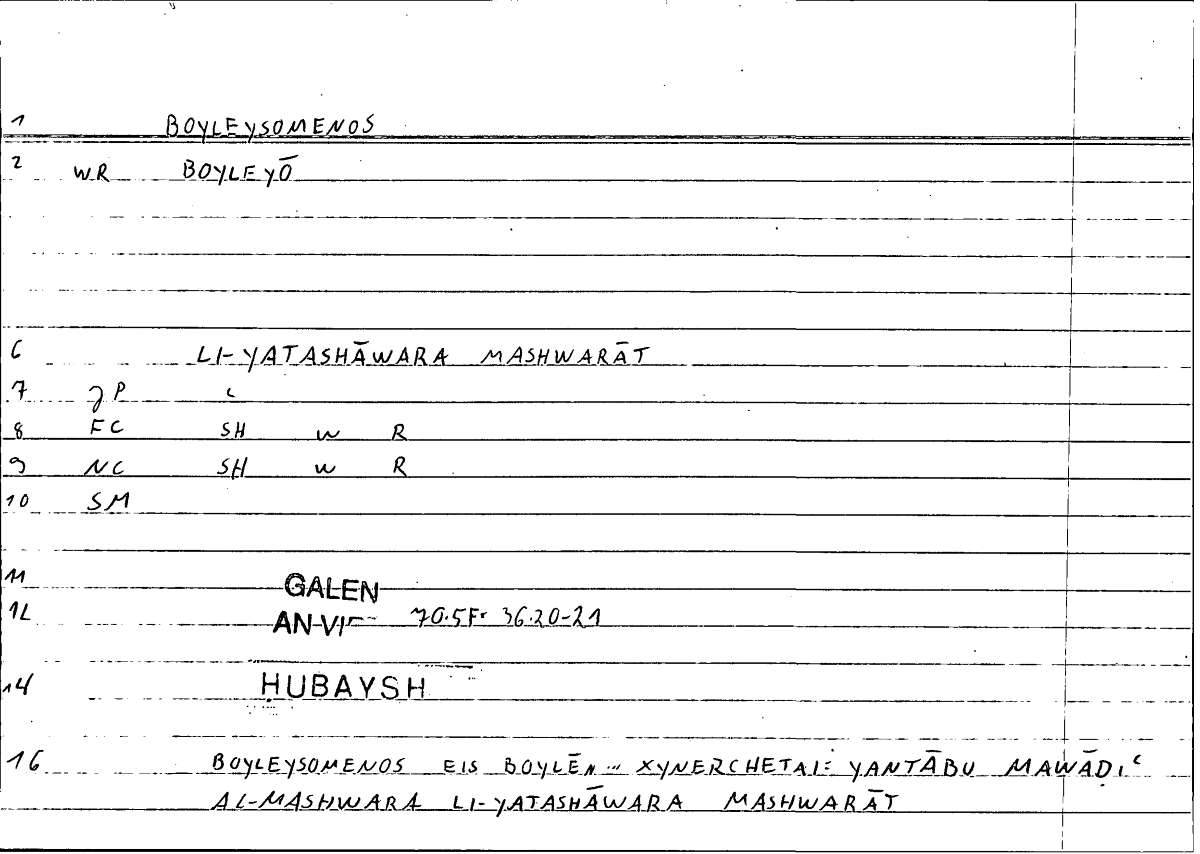 1 BOYLEYSOMENOS
2 WR BOYLEYŌ
6 LI-YATASHĀWARA MASHWARĀT
7 P
8 FC SH W R
9 NC SH W R
10 SM
11 GALEN
12 AN-VI 70.5F 36.20-21
14 ḤUBAYSH
16 BOYLEYSOMENOS EIS BOYLĒN ... XYNERCHETAI: YANTĀBU MAWĀḌIʿ
AL-MASHWARA LI-YATASHĀWARA MASHWARĀT